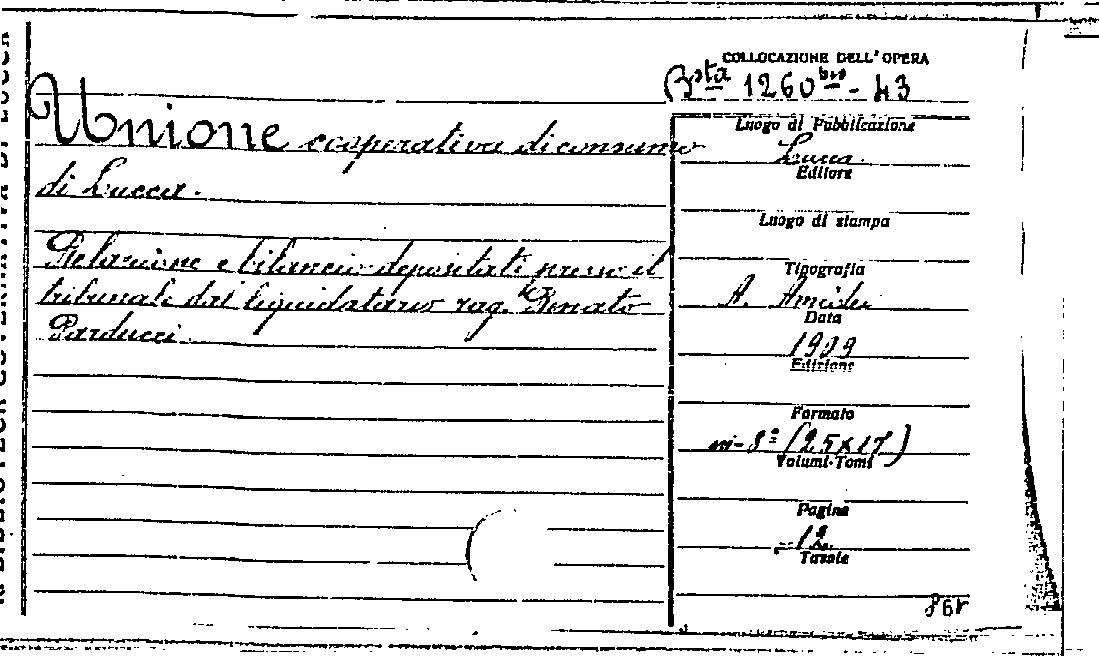 COLLOCAZIONE DELL'OPERA
Bsta 1260 bis - 43
Unione cooperativa di consumo
di Lucca.
Relazione e bilancio depositati presso il
tribunale dal liquidatario rag. Renato
Parducci.
Luogo di Pubblicazione
Lucca
Editore
Luogo di stampa
Tipografia
A. Amedei
Data
1909
Edizione
Formato
in-8º (25x17)
Volumi-Tomi
Pagine
12.
Tavole